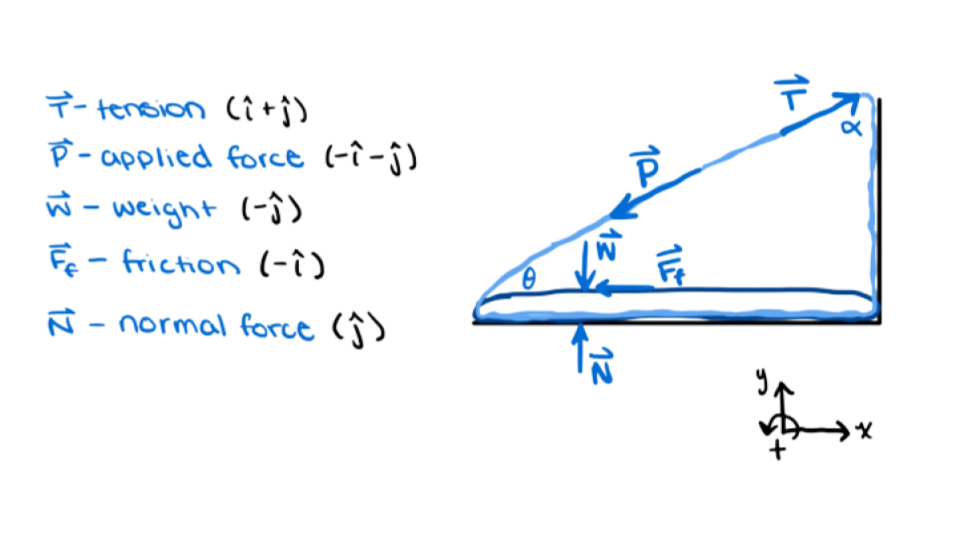 T⃗ - tension (î+ĵ)
P⃗ - applied force (-î-ĵ)
W⃗ - weight (-ĵ)
F⃗f - friction (-î)
N⃗ - normal force (ĵ)
T⃗
α
P⃗
W⃗
F⃗f
θ
N⃗
y
x
+